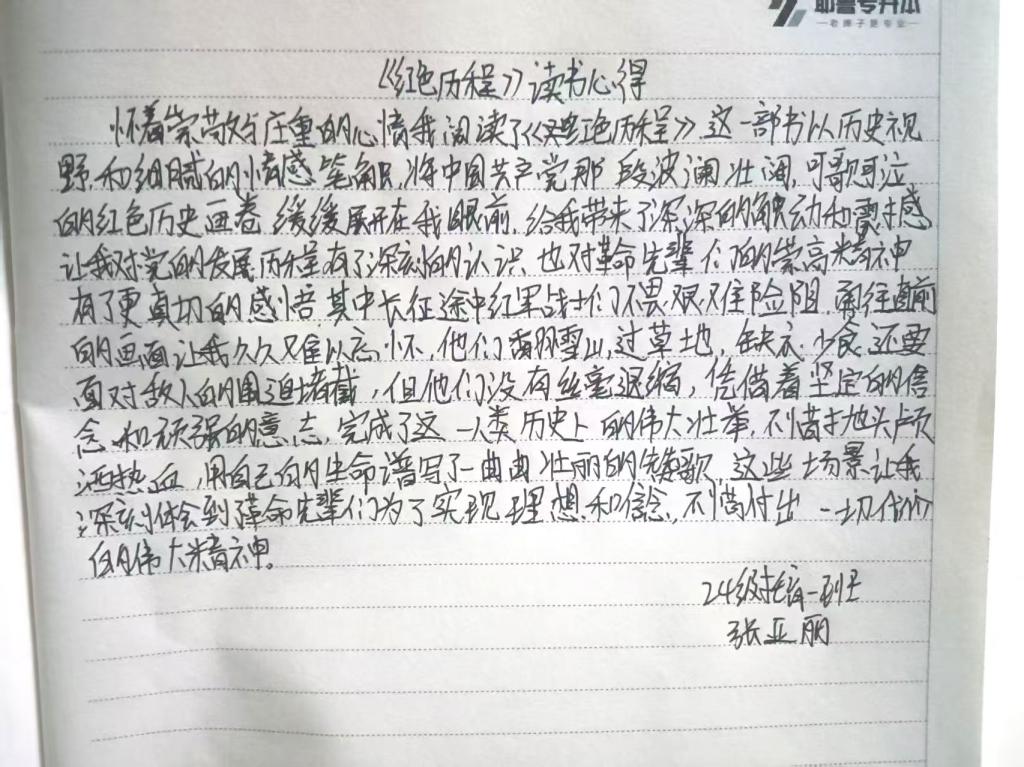 耶鲁专升本
老牌子更专业
《红色历程》读书心得
怀着崇敬与庄重的心情我阅读了《红色历程》这一部书以历史视
野和细腻的情感笔触,将中国共产党那段波澜壮阔,可歌可泣
的红色历史画卷缓缓展开在我眼前,给我带来了深深的触动和震撼感
让我对党的发展历程有了深刻的认识,也对革命先辈们的崇高精神
有了更真切的感悟,其中长征途中红军战士们不畏艰难险阻,勇往直前
的画面让我久久难以忘怀,他们翻雪山,过草地,缺衣少食,还要
面对敌人的围追堵截,但他们没有丝毫退缩,凭借着坚定的信
念和顽强的意志,完成了这一人类历史上的伟大壮举,不惜抛头颅
洒热血,用自己的生命谱写了一曲曲壮丽的赞歌,这些场景让我
深刻体会到革命先辈们为了实现理想和信念,不惜付出一切代价
的伟大精神。
24级托育一班
张亚丽